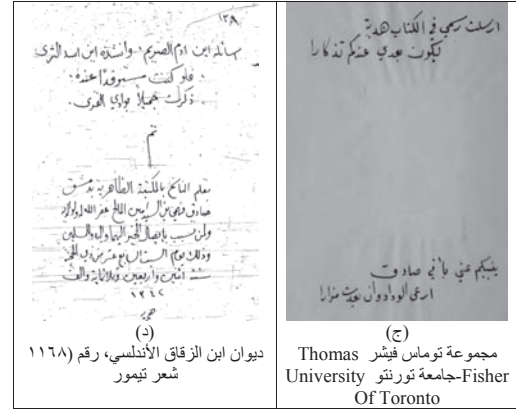 ارسلت رسمي في الكتاب هدية
ليكون بعدي عندكم تذكارا
ينبيكم عني بأني صادق
ارعى الوداد وأن بعدت مزارا
(ج)
مجموعة توماس فيشر Thomas
Fisher-جامعة تورنتو University
Of Toronto
١٣٨
ابن ادم
فلو كنت عنده
ذكرت جميلا بوادي القرى.
تم
بقلم الناسخ بالمكتبة الظاهرية بدمشق
صادق فهمي بن السيد أمين المالح غفر الله له
ولمن تسبب بايصال الخير اليهما والمسلمين
وذلك يوم السبت السابع عشر من ذي الحجة
سنة اثنين واربعين وثلاثماية والف
١٣٤٢
(د)
ديوان ابن الزقاق الأندلسي، رقم (١١٦٨
شعر تيمور